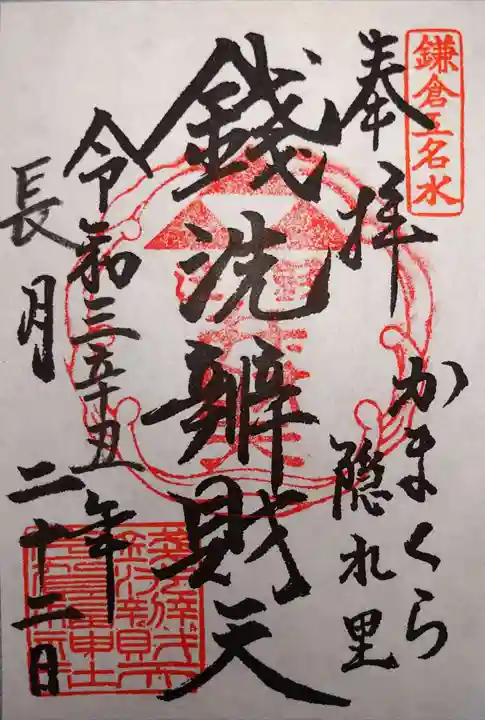 鎌倉五名水
奉拝
かまくら
隠れ里
銭洗辨財天
令和三辛丑年
長月二十二日